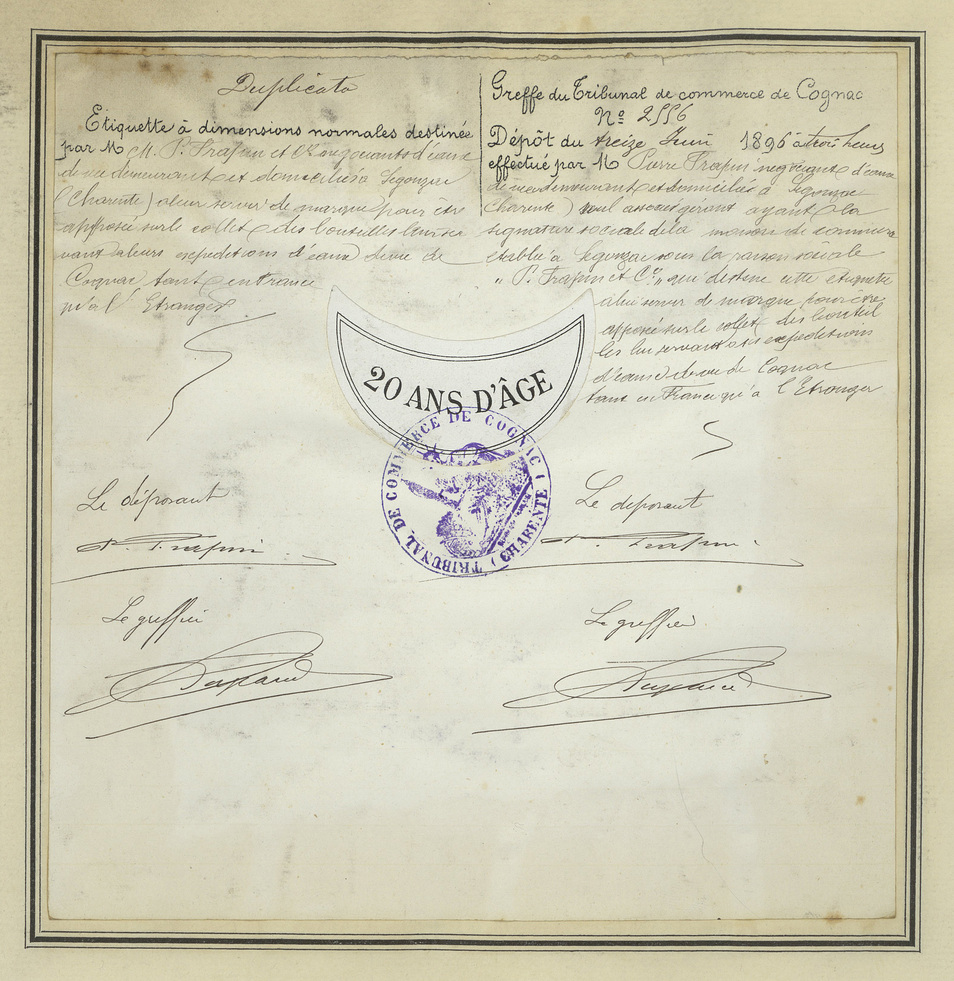 Duplicata
Etiquette à dimensions normales destinée
par M M. P. Frapin et Cie négociants d'eaux
de vie demeurant et domiciliés à Segonzac
(Charente) à leur servir de marque pour être
apposée sur le collet des bouteilles leur ser
vant à leurs expeditions d'eaux de vie de
Cognac tant en France
qu'à l'Etranger
Le déposant
P. Frapin
Le greffier
Greffe du Tribunal de commerce de Cognac
Nº 2556
Dépôt du treize Juin 1896 à trois heures
effectué par M Pierre Frapin négociant d'eaux
de vie demeurant et domicilié à Segonzac
Charente) seul associé gérant ayant la
signature sociale de la maison de commerce
établie à Segonzac sous la raison sociale
"P. Frapin et Cie" qui destine cette etiquette
à lui servir de marque pour être
apposée sur le collet des bouteil
les lui servant à ses expeditions
d'eaux de vie de Cognac
tant en France qu'à l'Etranger
Le deposant
P. Frapin
Le greffier
20 ANS D'ÂGE
TRIBUNAL DE COMMERCE DE COGNAC (CHARENTE)